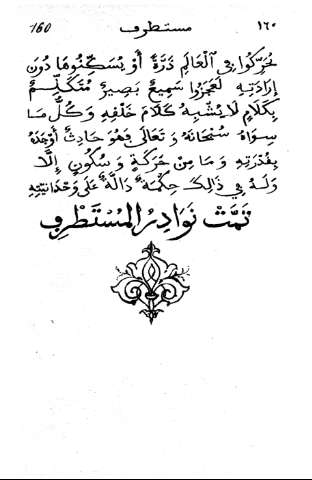 ١٦٠ مستطرف 160
يُحَرِّكُوا فِي الْعَالَمِ ذَرَّةً أَوْ يُسَكِّنُوهَا دُونَ
إِرَادَتِهِ لَعَجَزُوا سَمِيعٌ بَصِيرٌ مُتَكَلِّمٌ
بِكَلَامٍ لَا يُشْبِهُ كَلَامَ خَلْقِهِ وَكُلُّ مَا
سِوَاهُ سُبْحَانَهُ وَتَعَالَى فَهُوَ حَادِثٌ أَوْجَدَهُ
بِقُدْرَتِهِ وَمَا مِنْ حَرَكَةٍ وَسُكُونٍ إِلَّا
وَلَهُ فِي ذَالِكَ حِكْمَةٌ دَالَّةٌ عَلَى وَحْدَانِيَّتِهِ
تَمَّتْ نَوَادِرُ الْمُسْتَطْرِفِ